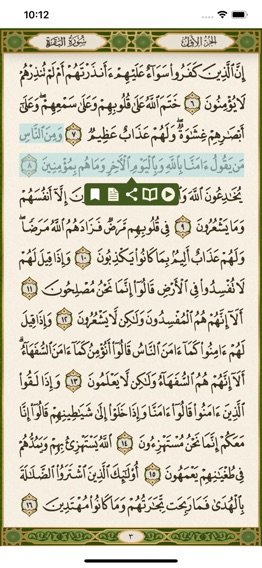 10:12
سُورَةُ البَقَرَةِ الجُزْءُ الأَوَّلُ
إِنَّ ٱلَّذِينَ كَفَرُوا۟ سَوَآءٌ عَلَيْهِمْ ءَأَنذَرْتَهُمْ أَمْ لَمْ تُنذِرْهُمْ
لَا يُؤْمِنُونَ ٦ خَتَمَ ٱللَّهُ عَلَىٰ قُلُوبِهِمْ وَعَلَىٰ سَمْعِهِمْ ۖ وَعَلَىٰٓ
أَبْصَٰرِهِمْ غِشَٰوَةٌ ۖ وَلَهُمْ عَذَابٌ عَظِيمٌ ٧ وَمِنَ ٱلنَّاسِ
مَن يَقُولُ ءَامَنَّا بِٱللَّهِ وَبِٱلْيَوْمِ ٱلْءَاخِرِ وَمَا هُم بِمُؤْمِنِينَ ٨
يُخَٰدِعُونَ ٱللَّهَ إِلَّآ أَنفُسَهُمْ
وَمَا يَشْعُرُونَ ٩ فِى قُلُوبِهِم مَّرَضٌ فَزَادَهُمُ ٱللَّهُ مَرَضًا ۖ
وَلَهُمْ عَذَابٌ أَلِيمٌۢ بِمَا كَانُوا۟ يَكْذِبُونَ ١٠ وَإِذَا قِيلَ لَهُمْ
لَا تُفْسِدُوا۟ فِى ٱلْأَرْضِ قَالُوٓا۟ إِنَّمَا نَحْنُ مُصْلِحُونَ ١١
أَلَآ إِنَّهُمْ هُمُ ٱلْمُفْسِدُونَ وَلَٰكِن لَّا يَشْعُرُونَ ١٢ وَإِذَا قِيلَ
لَهُمْ ءَامِنُوا۟ كَمَآ ءَامَنَ ٱلنَّاسُ قَالُوٓا۟ أَنُؤْمِنُ كَمَآ ءَامَنَ ٱلسُّفَهَآءُ ۗ
أَلَآ إِنَّهُمْ هُمُ ٱلسُّفَهَآءُ وَلَٰكِن لَّا يَعْلَمُونَ ١٣ وَإِذَا لَقُوا۟
ٱلَّذِينَ ءَامَنُوا۟ قَالُوٓا۟ ءَامَنَّا وَإِذَا خَلَوْا۟ إِلَىٰ شَيَٰطِينِهِمْ قَالُوٓا۟ إِنَّا
مَعَكُمْ إِنَّمَا نَحْنُ مُسْتَهْزِءُونَ ١٤ ٱللَّهُ يَسْتَهْزِئُ بِهِمْ وَيَمُدُّهُمْ
فِى طُغْيَٰنِهِمْ يَعْمَهُونَ ١٥ أُو۟لَٰٓئِكَ ٱلَّذِينَ ٱشْتَرَوُا۟ ٱلضَّلَٰلَةَ
بِٱلْهُدَىٰ فَمَا رَبِحَت تِّجَٰرَتُهُمْ وَمَا كَانُوا۟ مُهْتَدِينَ ١٦
٣